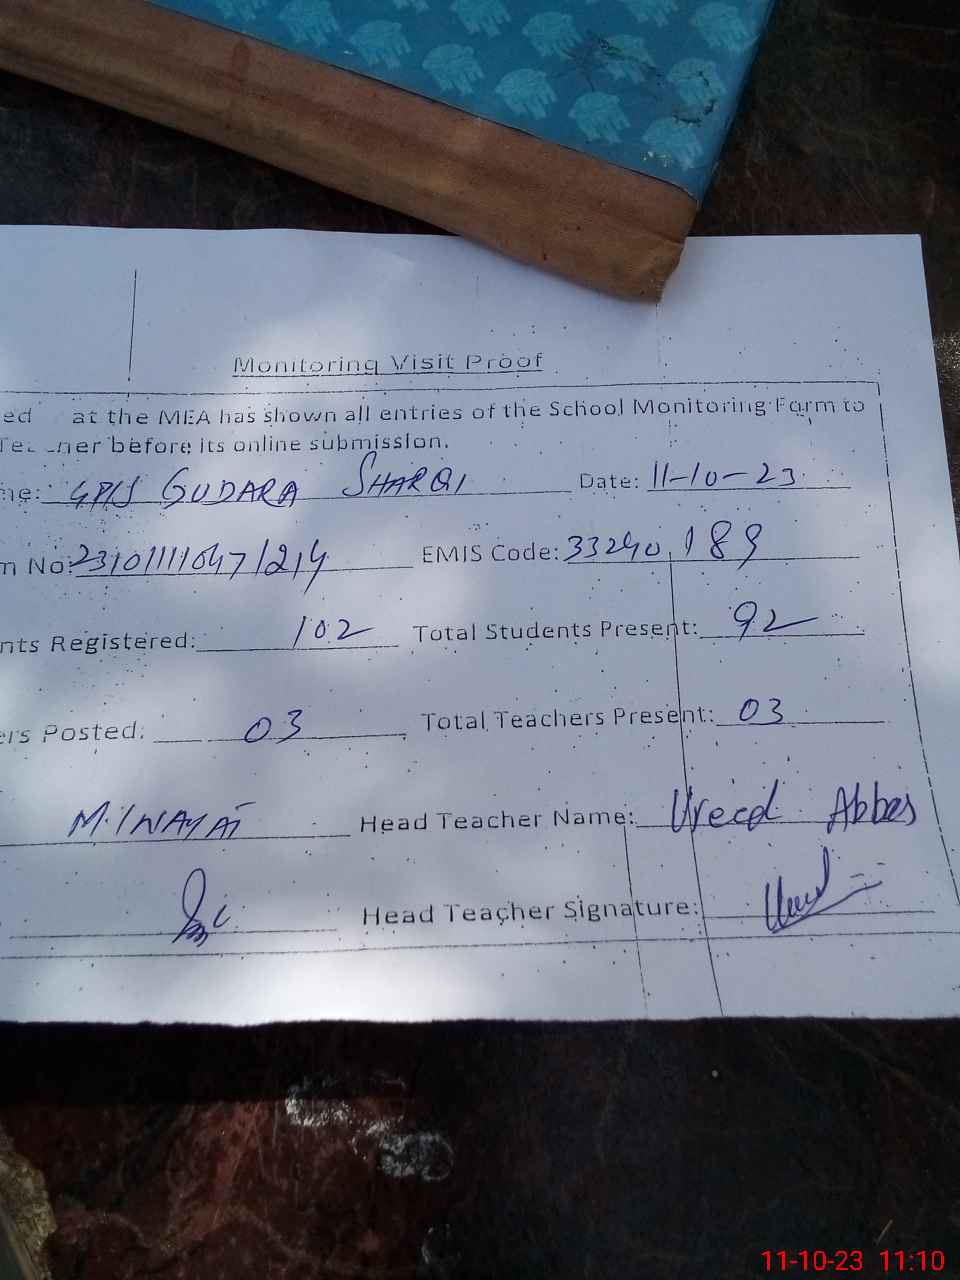 Monitoring Visit Proof
ed at the MEA has shown all entries of the School Monitoring Form to
ner before its online submission.
me: GP/S GUDARA SHARQI Date: 11-10-23
m No: 23101111047/214 EMIS Code: 33240189
nts Registered: 102 Total Students Present: 92
ers Posted: 03 Total Teachers Present: 03
M. INAYAT Head Teacher Name: Abbas
Head Teacher Signature:
11-10-23 11:10